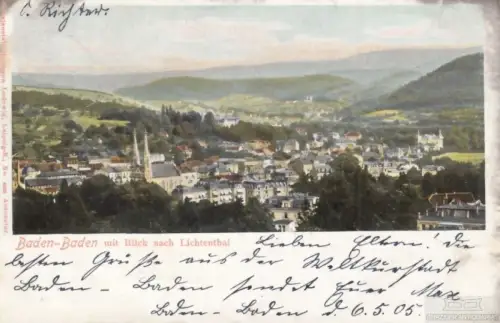 C. Richter.
Baden-Baden mit Blick nach Lichtenthal
Lieben Eltern. Die
besten Grüße aus der Weltkurstadt
Baden - Baden sendet Euer Max
Baden - Baden d. 6.5.05.